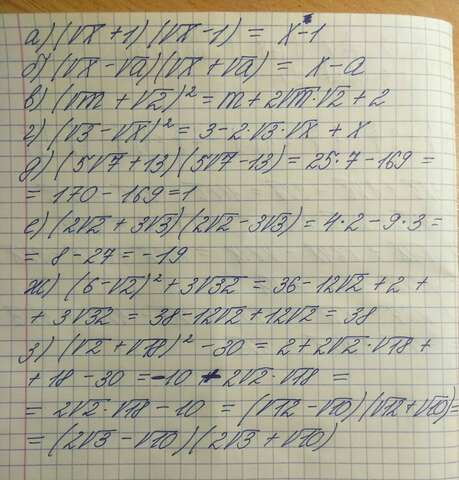 а) (√x + 1)(√x - 1) = x - 1
б) (√x - √a)(√x + √a) = x - a
в) (√m + √2)² = m + 2√m·√2 + 2
г) (√3 - √x)² = 3 - 2·√3·√x + x
д) (5√7 + 13)(5√7 - 13) = 25·7 - 169 =
= 170 - 169 = 1
е) (2√2 + 3√3)(2√2 - 3√3) = 4·2 - 9·3 =
= 8 - 27 = -19
ж) (6 - √2)² + 3√32 = 36 - 12√2 + 2 +
+ 3√32 = 38 - 12√2 + 12√2 = 38
з) (√2 + √18)² - 30 = 2 + 2√2·√18 +
+ 18 - 30 = -10 + 2√2·√18 =
= 2√2·√18 - 10 = (√12 - √10)(√12 + √10) =
= (2√3 - √10)(2√3 + √10)